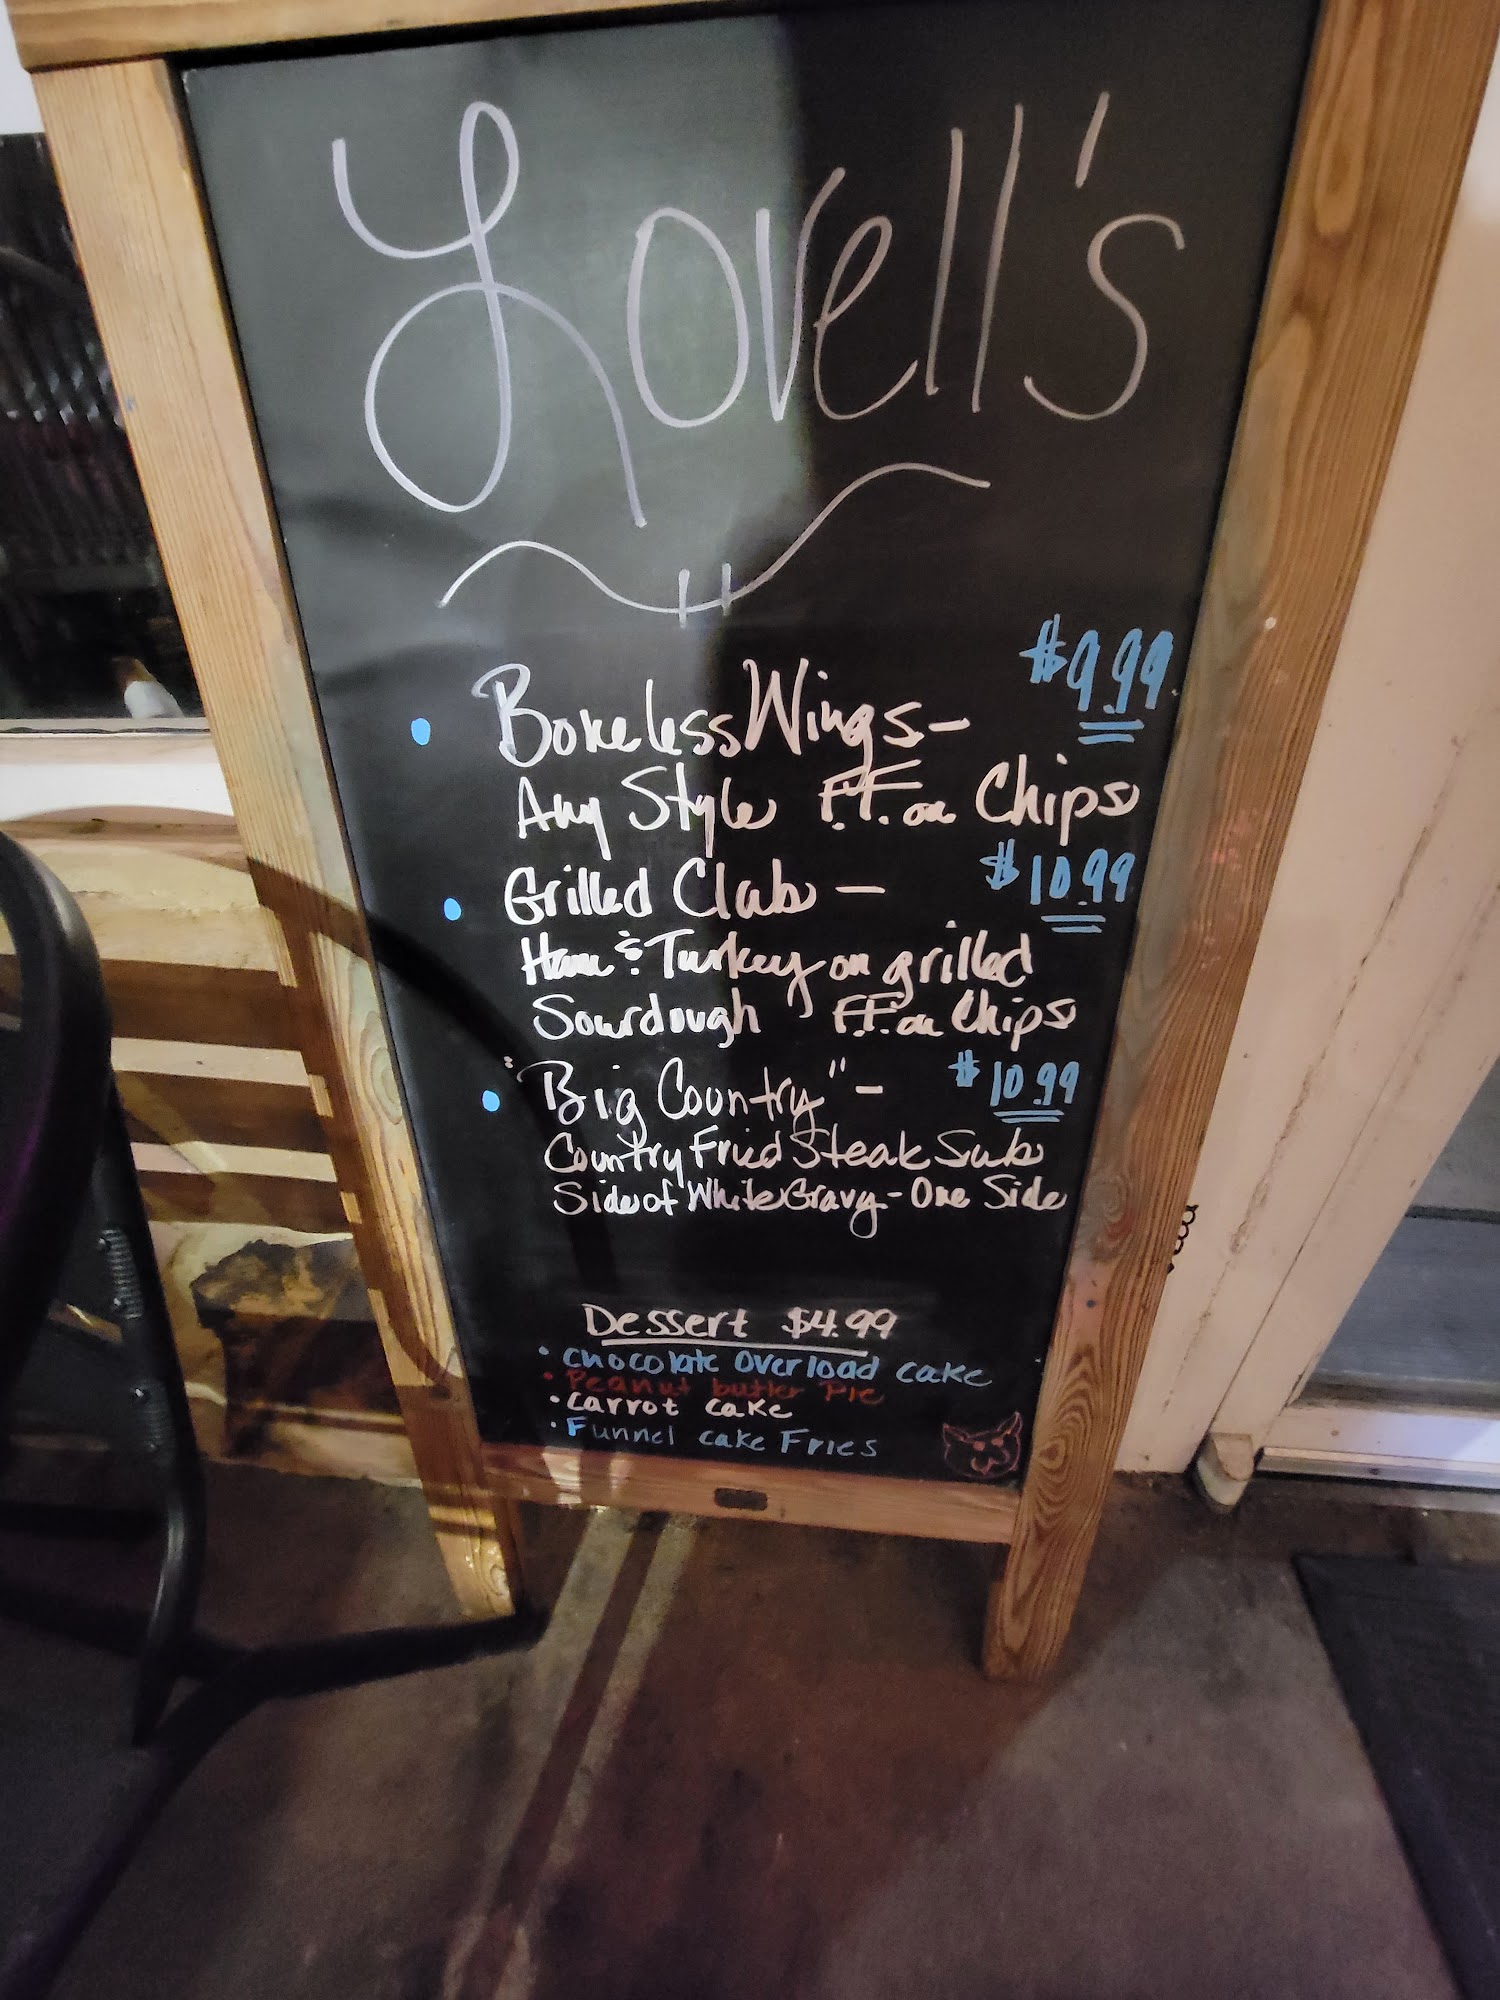 Lovell's
• Boneless Wings - $9.99
Any Style F.F. or Chips
• Grilled Club - $10.99
Ham & Turkey on grilled
Sourdough F.F. or Chips
• "Big Country" - $10.99
Country Fried Steak Sub
Side of White Gravy - One Side
Dessert $4.99
• chocolate overload cake
• Peanut butter Pie
• carrot cake
• Funnel cake Fries